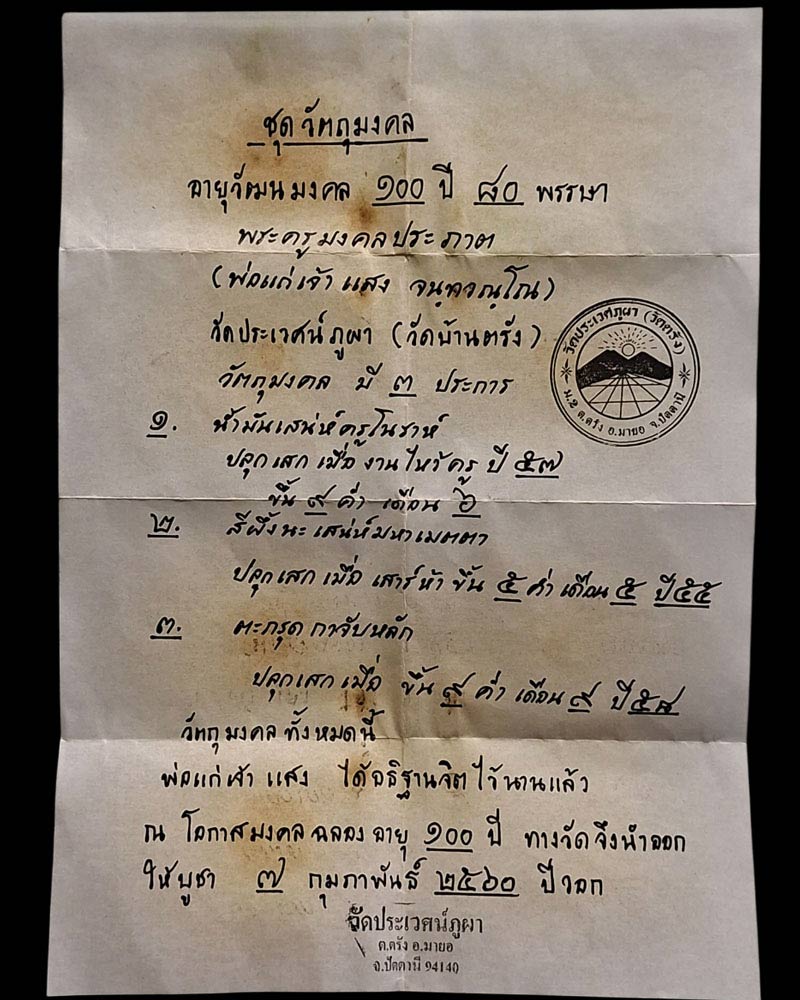 ชุดวัตถุมงคล
อายุวัฒนมงคล ๑๐๐ ปี ๘๐ พรรษา
พระครูมงคลประภาต
(พ่อแก่เจ้า แสง จนฺทวณฺโณ)
วัดประเวศน์ภูผา (วัดบ้านตรัง)
วัตถุมงคล มี ๓ ประการ
๑. น้ำมันเสน่ห์ครูโนราห์
ปลุกเสก เมื่อ งานไหว้ครู ปี ๕๗
ขึ้น ๙ ค่ำ เดือน ๖
๒. สีผึ้งนะ เสน่ห์มหาเมตตา
ปลุกเสก เมื่อ เสาร์ห้า ขึ้น ๕ ค่ำ เดือน ๕ ปี๕๕
๓. ตะกรุด กาจับหลัก
ปลุกเสก เมื่อ ขึ้น ๙ ค่ำ เดือน ๙ ปี๕๘
วัตถุมงคล ทั้งหมดนี้
พ่อแก่เจ้า แสง ได้อธิฐานจิตไว้นานแล้ว
ณ โอกาสมงคล ฉลอง อายุ ๑๐๐ ปี ทางวัดจึงนำออก
ให้บูชา ๗ กุมภาพันธ์ ๒๕๖๐ ปีวอก
วัดประเวศภูผา (วัดตรัง)
ม.2 ต.ตรัง อ.มายอ จ.ปัตตานี
วัดประเวศน์ภูผา
ต.ตรัง อ.มายอ
จ.ปัตตานี 94140